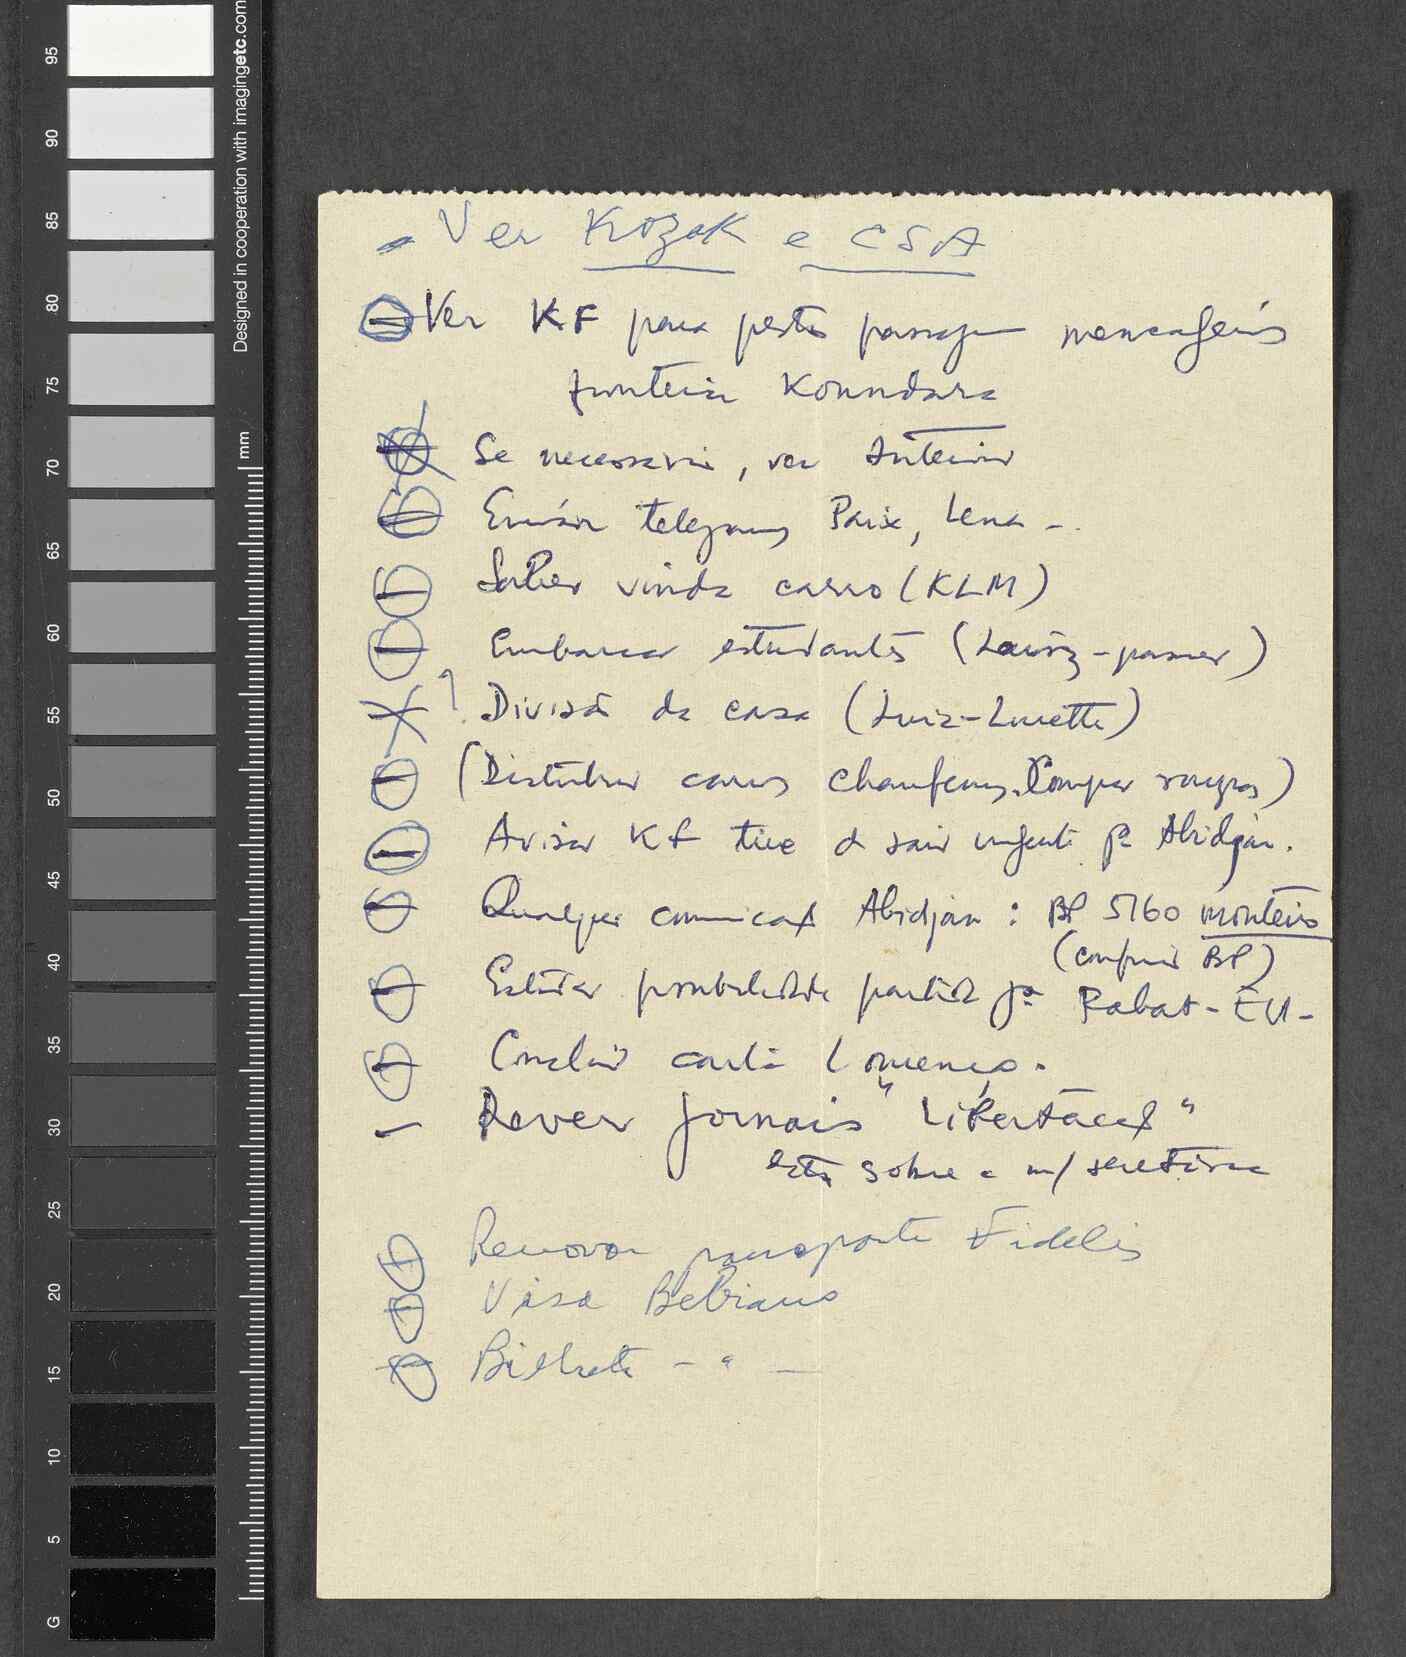 - Ver Kozak e CSA
- Ver KF para passagem
fronteira Koundara
Se necessario, ver Interior
Enviar telegramas Paix, Lena -
Saber vinda carro (KLM)
Embarcar estudantes (Luiz - )
? Divisão da casa (Luiz-Lucette)
(Distribuir carros chaufeurs. Comprar )
Avisar KF tive de sair urgente pª Abidjan.
Qualquer comunicação Abidjan : BP 5160 Monteiro
(confirmar BP)
Estudar possibilidade partida pª Rabat - EU -
Concluir carta Lourenço.
- Rever jornais "Libertação"
estão sobre a m/ secretária
Renovar passaporte Fidelis
Visa Bebiano
Bilhete - " -
95
90
85
80
75
70
65
60
55
50
45
40
35
30
25
20
15
10
5
G
Designed in cooperation with imagingetc.com
mm